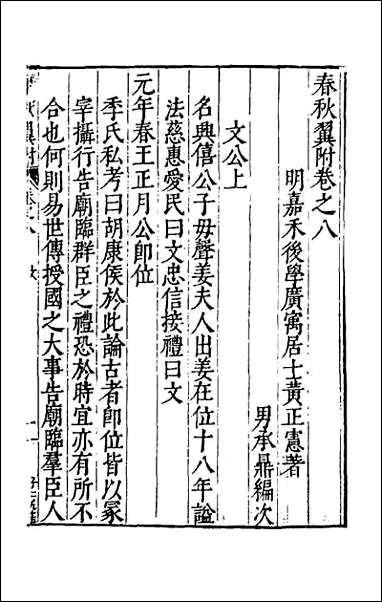 春秋翼附卷之八
明嘉禾後學廣寓居士黃正憲著
男承鼎編次
文公上
名興僖公子毋聲姜夫人出姜在位十八年諡
法慈惠愛民曰文忠信接禮曰文
元年春王正月公卽位
季氏私考曰胡康侯於此論古者卽位皆以冢
宰攝行告廟臨群臣之禮恐於時宜亦有所不
合也何則易世傳授國之大事告廟臨羣臣人